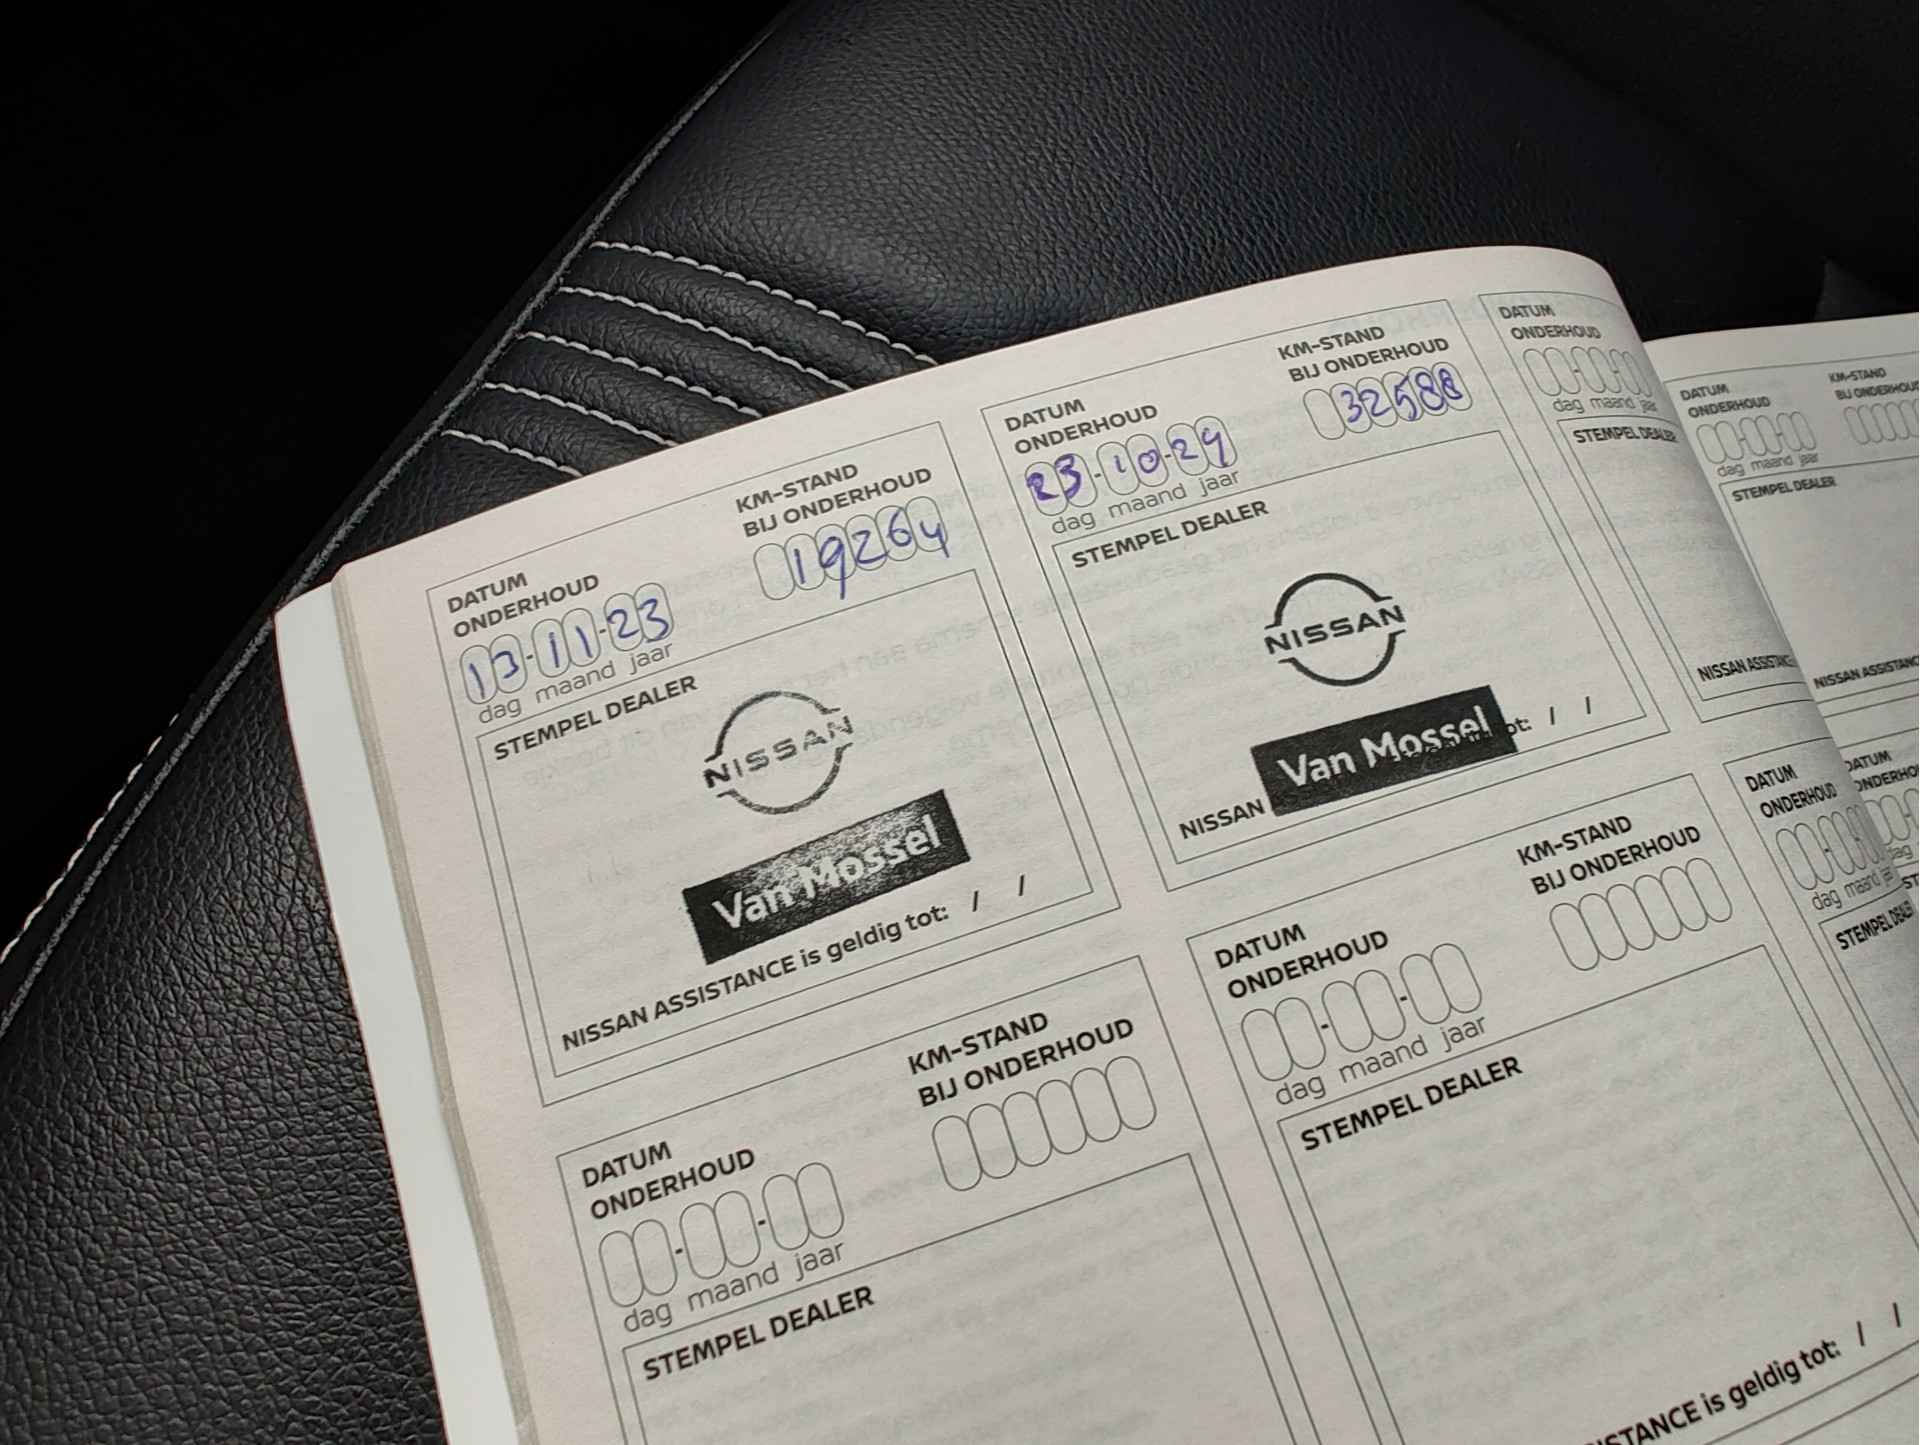 DATUM
ONDERHOUD
13-11-23
dag maand jaar
KM-STAND
BIJ ONDERHOUD
19264
STEMPEL DEALER
NISSAN
Van Mossel
NISSAN ASSISTANCE is geldig tot: / /
DATUM
ONDERHOUD
23-10-24
dag maand jaar
KM-STAND
BIJ ONDERHOUD
32588
STEMPEL DEALER
NISSAN
Van Mossel
NISSAN ot: / /
DATUM
ONDERHOUD
dag maand jaar
STEMPEL DEALER
NISSAN ASSISTANCE
DATUM
ONDERHOUD
dag maand jaar
KM-STAND
BIJ ONDERHOUD
STEMPEL DEALER
NISSAN ASSISTANC
DATUM
ONDERHOUD
dag maand jaar
KM-STAND
BIJ ONDERHOUD
STEMPEL DEALER
DATUM
ONDERHOUD
dag maand jaar
KM-STAND
BIJ ONDERHOUD
STEMPEL DEALER
STANCE is geldig tot: / /
DATUM
ONDERHOUD
dag maand
STEMPEL DEALER
DATUM
ONDERHO
dag